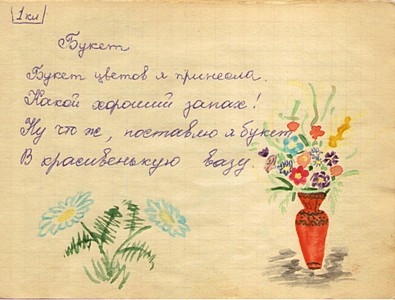 1 кл
Букет
Букет цветов я принесла.
Какой хороший запах!
Ну что ж, поставлю я букет
В красивенькую вазу.